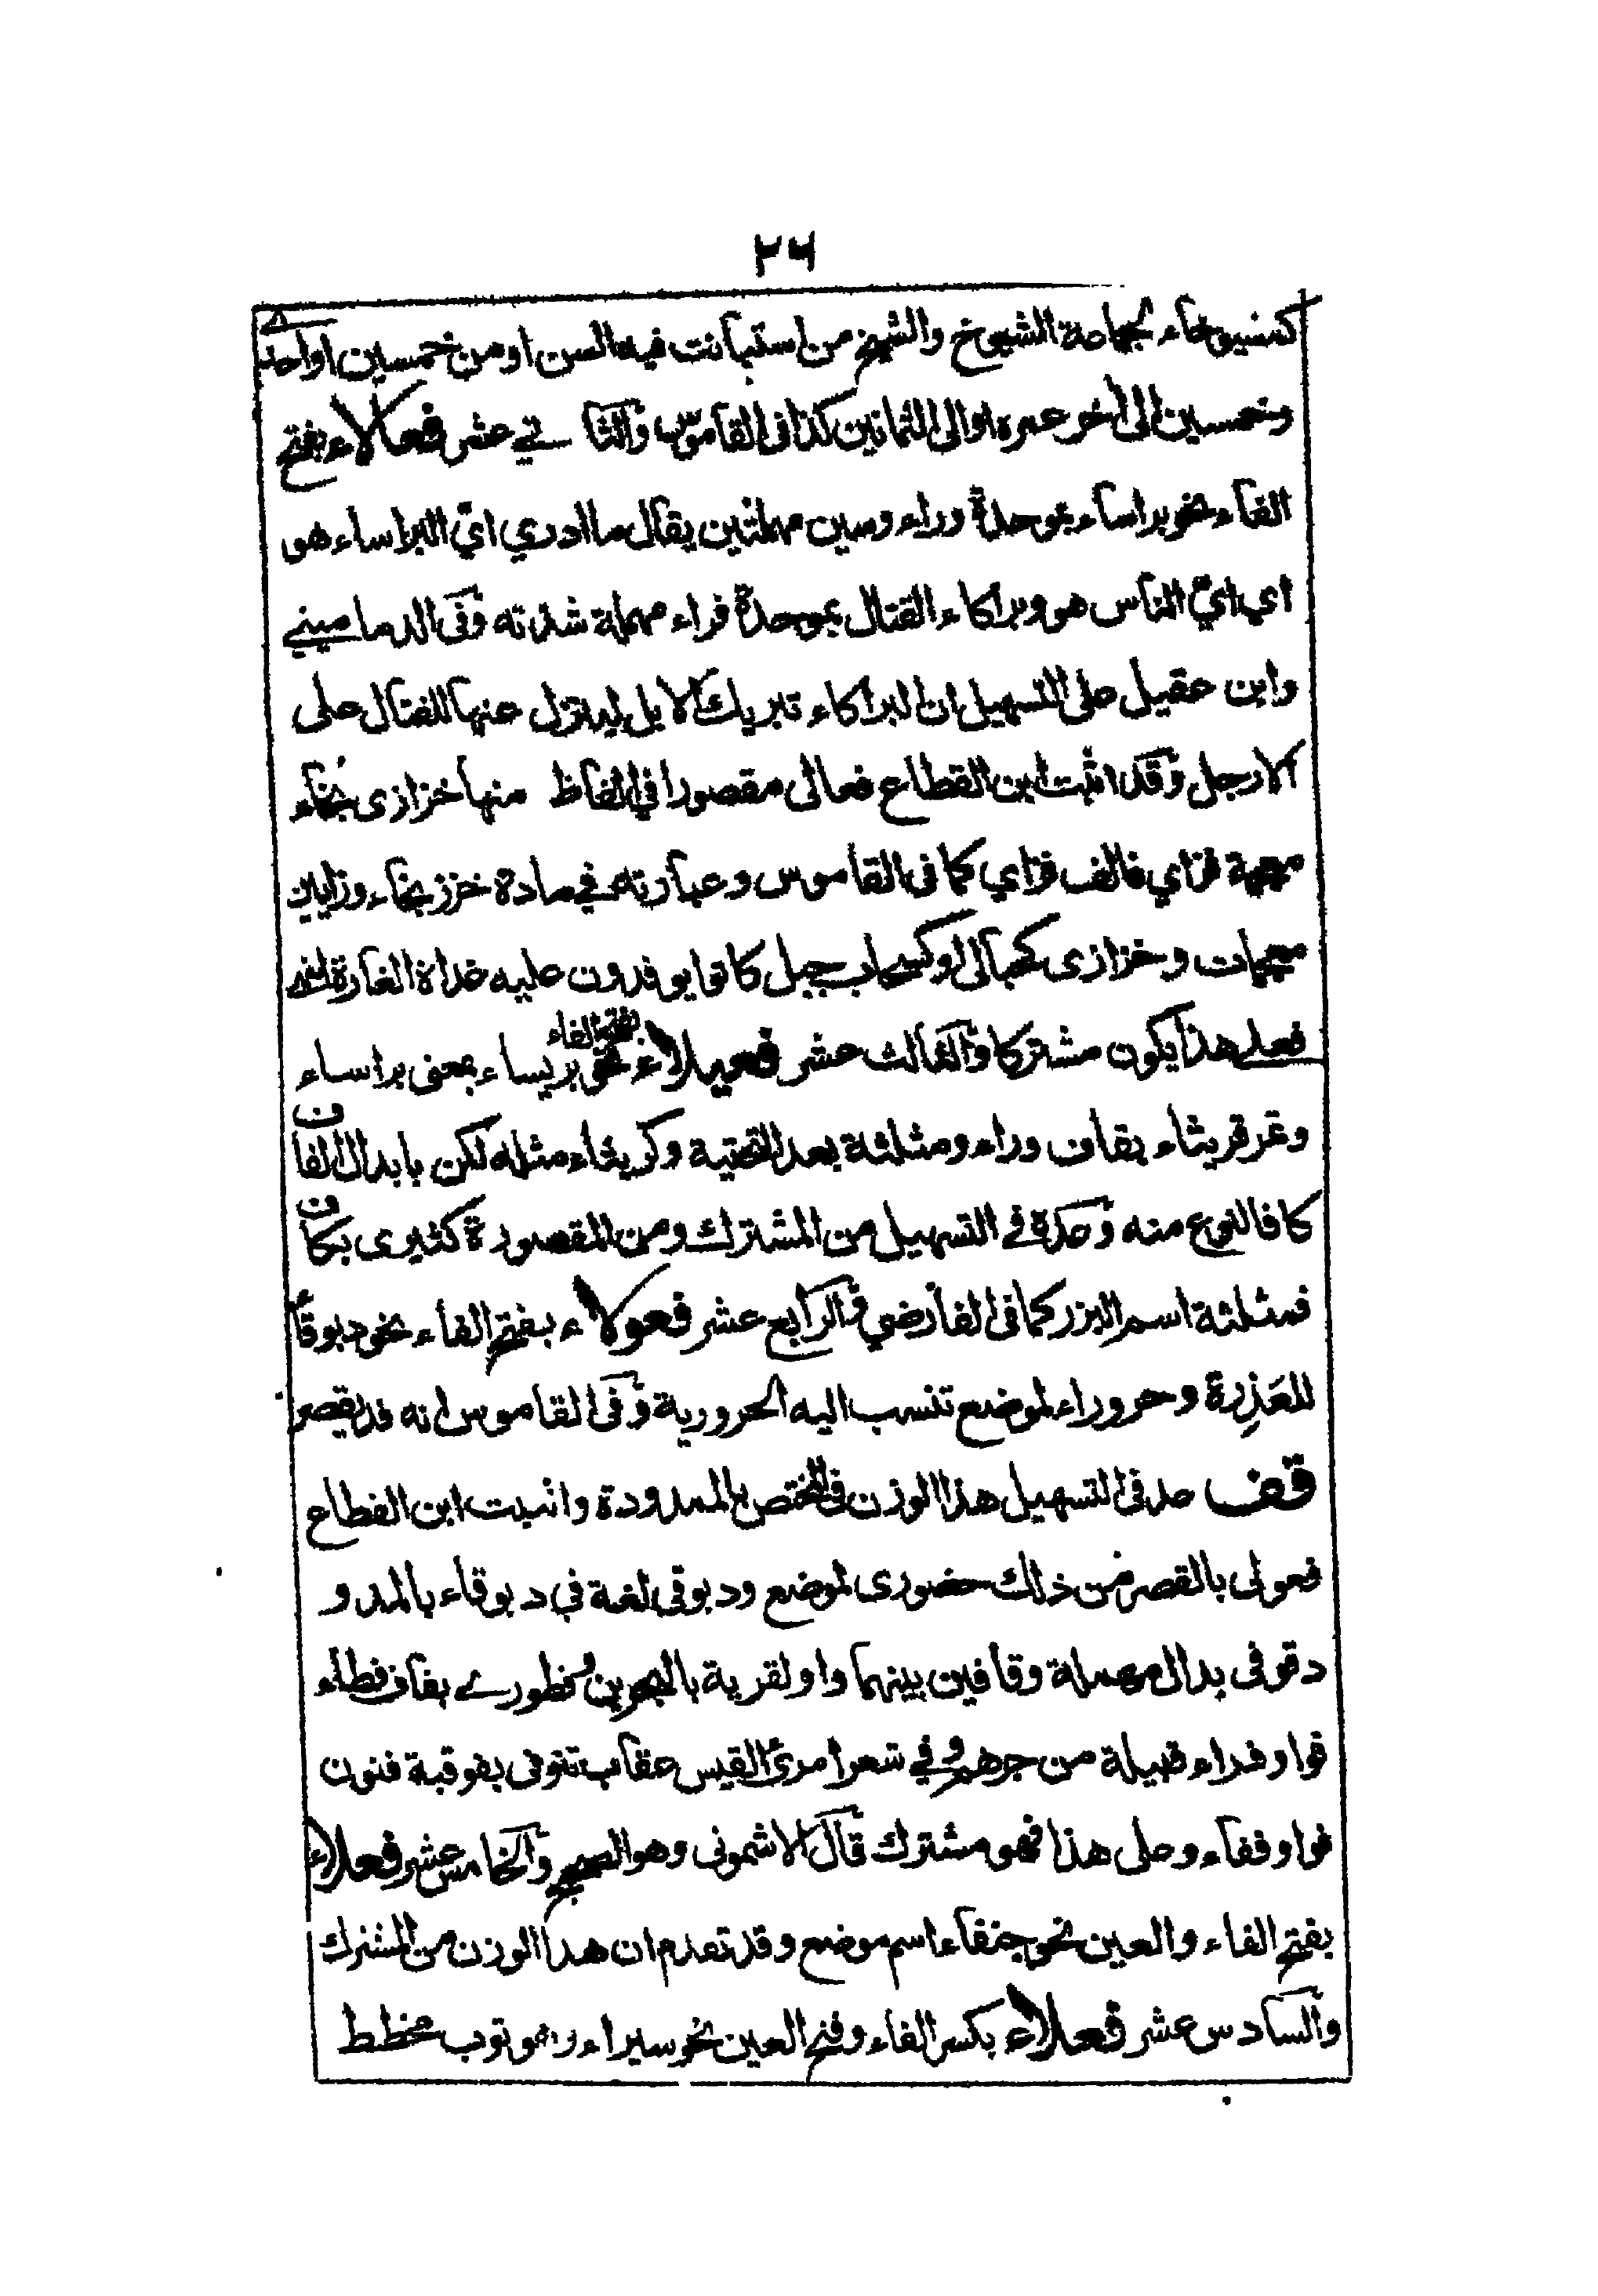 ٢٦
كمشيوخاء لجماعة الشيوخ والشيخ من استبانت فيه السن او من خمسين او احدى
وخمسين الى آخر عمره او الى الثمانين كذا فى القاموس والثا ني عشر فعالاء بفتح
الفاء نحو براساء بموحدة وراء وسين مهملتين يقال ما ادري اىّ البراساء هو
اي ايّ الناس هو وبراكاء القتال بموحدة فراء مهملة شدته وفى الدماميني
وابن عقيل على التسهيل ان البراكاء تبريك الابل لينزل عنها للقتال على
الارجل وقد اثبت ابن القطاع فعالى مقصورا فى الفاظ منها خزازى بخاء
معجمة فزاي فالف فزاي كما فى القاموس وعبارته في مادة خزز بخاء وزايين
معجمات وخزازى كحبالى او كسحاب جبل كانوا يوقدون عليه غداة الغارة انتهى
فعلى هذا يكون مشتركا والثالث عشر فعيلاء بفتح الفاء نحو بريساء بمعنى براساء
وتمر قريثاء بقاف وراء ومثلثة بعد التحتية وكريثاء مثله لكن بابدال القاف
كافا لنوع منه وعده في التسهيل من المشترك ومن المقصورة كثيرى بكاف
فمثلثة اسم البزر كما فى الفارضي والرابع عشر فعولاء بفتح الفاء نحو دبوقا
للعَذِرة وحروراء لموضع تنسب اليه الحرورية وفى القاموس انه قد يقصر
قف عد فى التسهيل هذا الوزن فى المختص بالممدودة واثبت ابن القطاع
فعولى بالقصر من ذلك حضورى لموضع ودبوقى لغة في دبوقاء بالمد و
دقوقى بدال مهملة وقافين بينهما واو لقرية بالبحرين وقطورے بقاف فطاء
فواو فراء قبيلة من جرهم وفي شعر امرئ القيس عقاب تنوفى بفوقية فنون
فواو ففاء وعلى هذا فهو مشترك قال الاشمونى وهو الصحيح والخامس عشر فعلاء
بفتح الفاء والعين نحو جنفاء اسم موضع وقد تقدم ان هذا الوزن من المشترك
والسادس عشر فعلاء بكسر الفاء وفتح العين نحو سيراء وهو ثوب مخطط